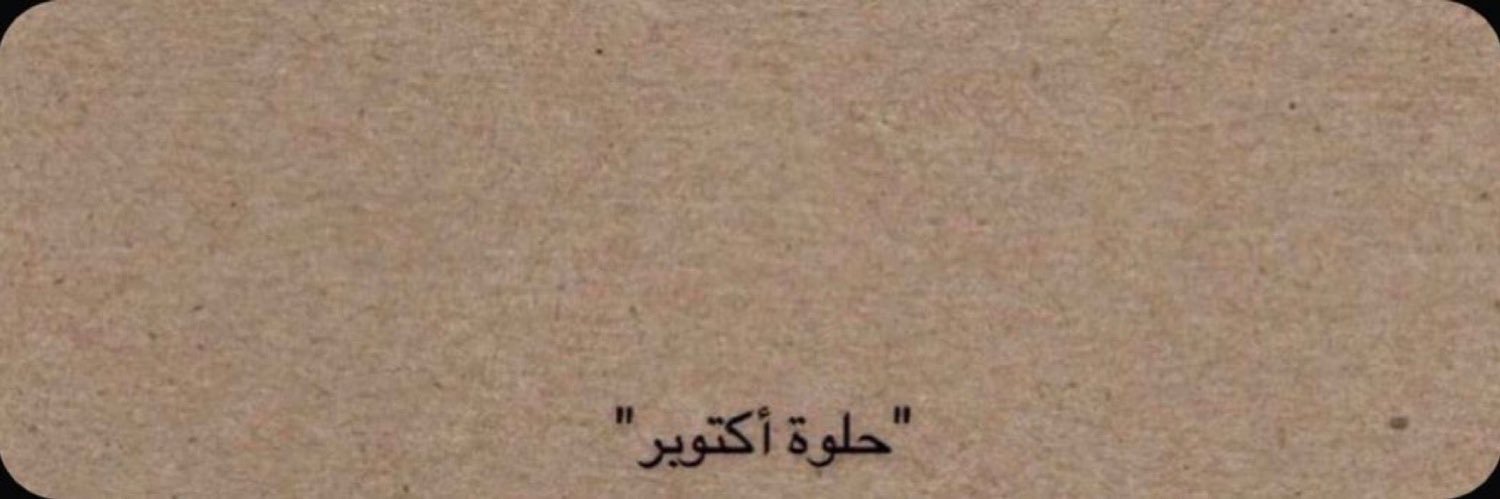 "حلوة أكتوبر"